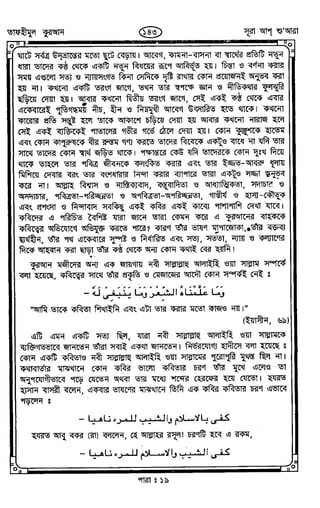 তাফহীমুল কুরআন
১৪৩
সূরা আশ্ শু'আরা
ঘাটে সর্বত্র উদ্ভ্রান্তের মতো ছুটে বেড়ায়। আবেগ, কামনা-বাসনা বা স্বার্থের প্রতিটি নতুন
ধারা তাদের কণ্ঠ থেকে একটি নতুন বিষয়ের রূপে আবির্ভূত হয়। চিন্তা ও বর্ণনা করার
সময় এগুলো সত্য ও ন্যায়সংগত কিনা সেদিকে দৃষ্টি রাখার কোন প্রয়োজনই অনুভব করা
হয় না। কখনো একটি তরংগ জাগে, তখন তার স্বপক্ষে জ্ঞান ও নীতিকথার ফুলঝুরি
ছড়িয়ে দেয়া হয়। আবার কখনো দ্বিতীয় তরংগ জাগে, সেই একই কণ্ঠ থেকে এবার
একেবারেই পুতিগন্ধময় নীচ, হীন ও নিম্নমুখী আবেগ উৎসারিত হতে থাকে। কখনো
কারোর প্রতি সন্তুষ্ট হলে তাকে আকাশে চড়িয়ে দেয়া হয় আবার কখনো নারাজ হলে
সেই একই ব্যক্তিকেই পাতালের গভীর গর্তে ঠেলে দেয়া হয়। কোন কৃপণকে হাতেম
এবং কোন কাপুরুষকে বীর রুস্তম গণ্য করতে তাদের বিবেকে একটুও বাধে না যদি তার
সাথে তাদের কোন স্বার্থ জড়িত থাকে। পক্ষান্তরে কেউ যদি তাদেরকে কোন দুঃখ দিয়ে
থাকে তাহলে তার পবিত্র জীবনকে কলংকিত করার এবং তার ইজ্জত-আব্রু ধূলায়
মিশিয়ে দেবার বরং তার বংশধারার নিন্দা করার ব্যাপারে তারা একটুও লজ্জা অনুভব
করে না। আল্লাহ বিশ্বাস ও নাস্তিক্যবাদ, বস্তুবাদিতা ও আধ্যাত্মিকতা, সদাচার ও
অসদাচার, পবিত্রতা-পরিচ্ছন্নতা ও অপবিত্রতা-অপরিচ্ছন্নতা, গাম্ভীর্য ও হাস্য-কৌতুক
এবং প্রশংসা ও নিন্দাবাদ সবকিছু একই কবির একই কাব্যে পাশাপাশি দেখা যাবে।
কবিদের এ পরিচিত বৈশিষ্ট যারা জানে তারা কেমন করে এ কুরআনের বাহককে
কবিত্বের অভিযোগে অভিযুক্ত করতে পারে? কারণ তাঁর ভাষণ মাপাজোকা, তাঁর বক্তব্য
দ্ব্যর্থহীন, তাঁর পথ একেবারে সুস্পষ্ট ও নির্ধারিত এবং সত্য, সততা, ন্যায় ও কল্যাণের
দিকে আহবান করা ছাড়া তাঁর কণ্ঠ থেকে অন্য কোন কথাই বের হয়নি।
কুরআন মজীদের অন্য এক জায়গায় নবী সাল্লাল্লাহু আলাইহি ওয়া সাল্লাম সম্পর্কে
বলা হয়েছে, কবিত্বের সাথে তাঁর প্রকৃতি ও মেজাজের আদৌ কোন সম্পর্কই নেই :
وَمَا عَلَّمْنَاهُ الشِّعْرَ وَمَا يَنْبَغِى لَهُ -
"আমি তাকে কবিতা শিখাইনি এবং এটা তার করার মতো কাজও নয়।"
(ইয়াসীন, ৬৯)
এটি এমন একটি সত্য ছিল, যারা নবী সাল্লাল্লাহু আলাইহি ওয়া সাল্লামকে
ব্যক্তিগতভাবে জানতেন তাঁরা সবাই একথা জানতেন। নির্ভরযোগ্য হাদীসে বলা হয়েছে :
কোন একটি কবিতাও নবী সাল্লাল্লাহু আলাইহি ওয়া সাল্লামের পুরোপুরি মুখস্থ ছিল না।
কথাবার্তার মাঝখানে কোন কবির ভালো কবিতার চরণ তাঁর মুখে এলেও তা
অনুপযোগীভাবে পড়ে যেতেন অথবা তার মধ্যে শব্দের হেরফের হয়ে যেতো। হযরত
হাসান বাসরী বলেন, একবার ভাষণের মাঝখানে তিনি এক কবির কবিতার চরণ এভাবে
পড়লেন :
كفى بالاسلام والشيب للمرء ناهيا -
হযরত আবু বকর (রা) বললেন, হে আল্লাহর রসূল! চরণটি হবে এ রকম,
كفى الشيب والاسلام للمرء ناهيا -
পারা : ১৯